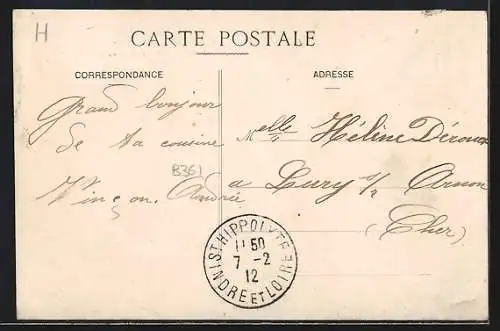 H
CARTE POSTALE
CORRESPONDANCE
ADRESSE
Grand bonjour
de ta cousine
André
B361
Melle Hélène
a Lury s/ Arnon
(Cher)
ST HIPPOLYTE
11 50
7 - 2
12
INDRE ET LOIRE